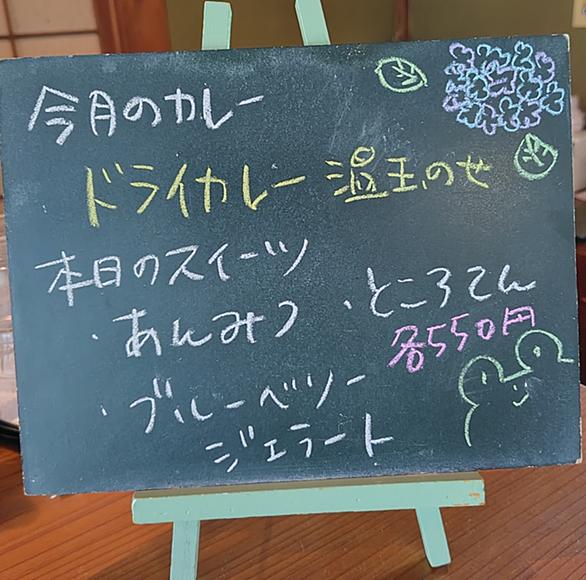 今月のカレー
ドライカレー 温玉のせ
本日のスイーツ
・あんみつ ・ところてん
各550円
・ブルーベリー
ジェラート